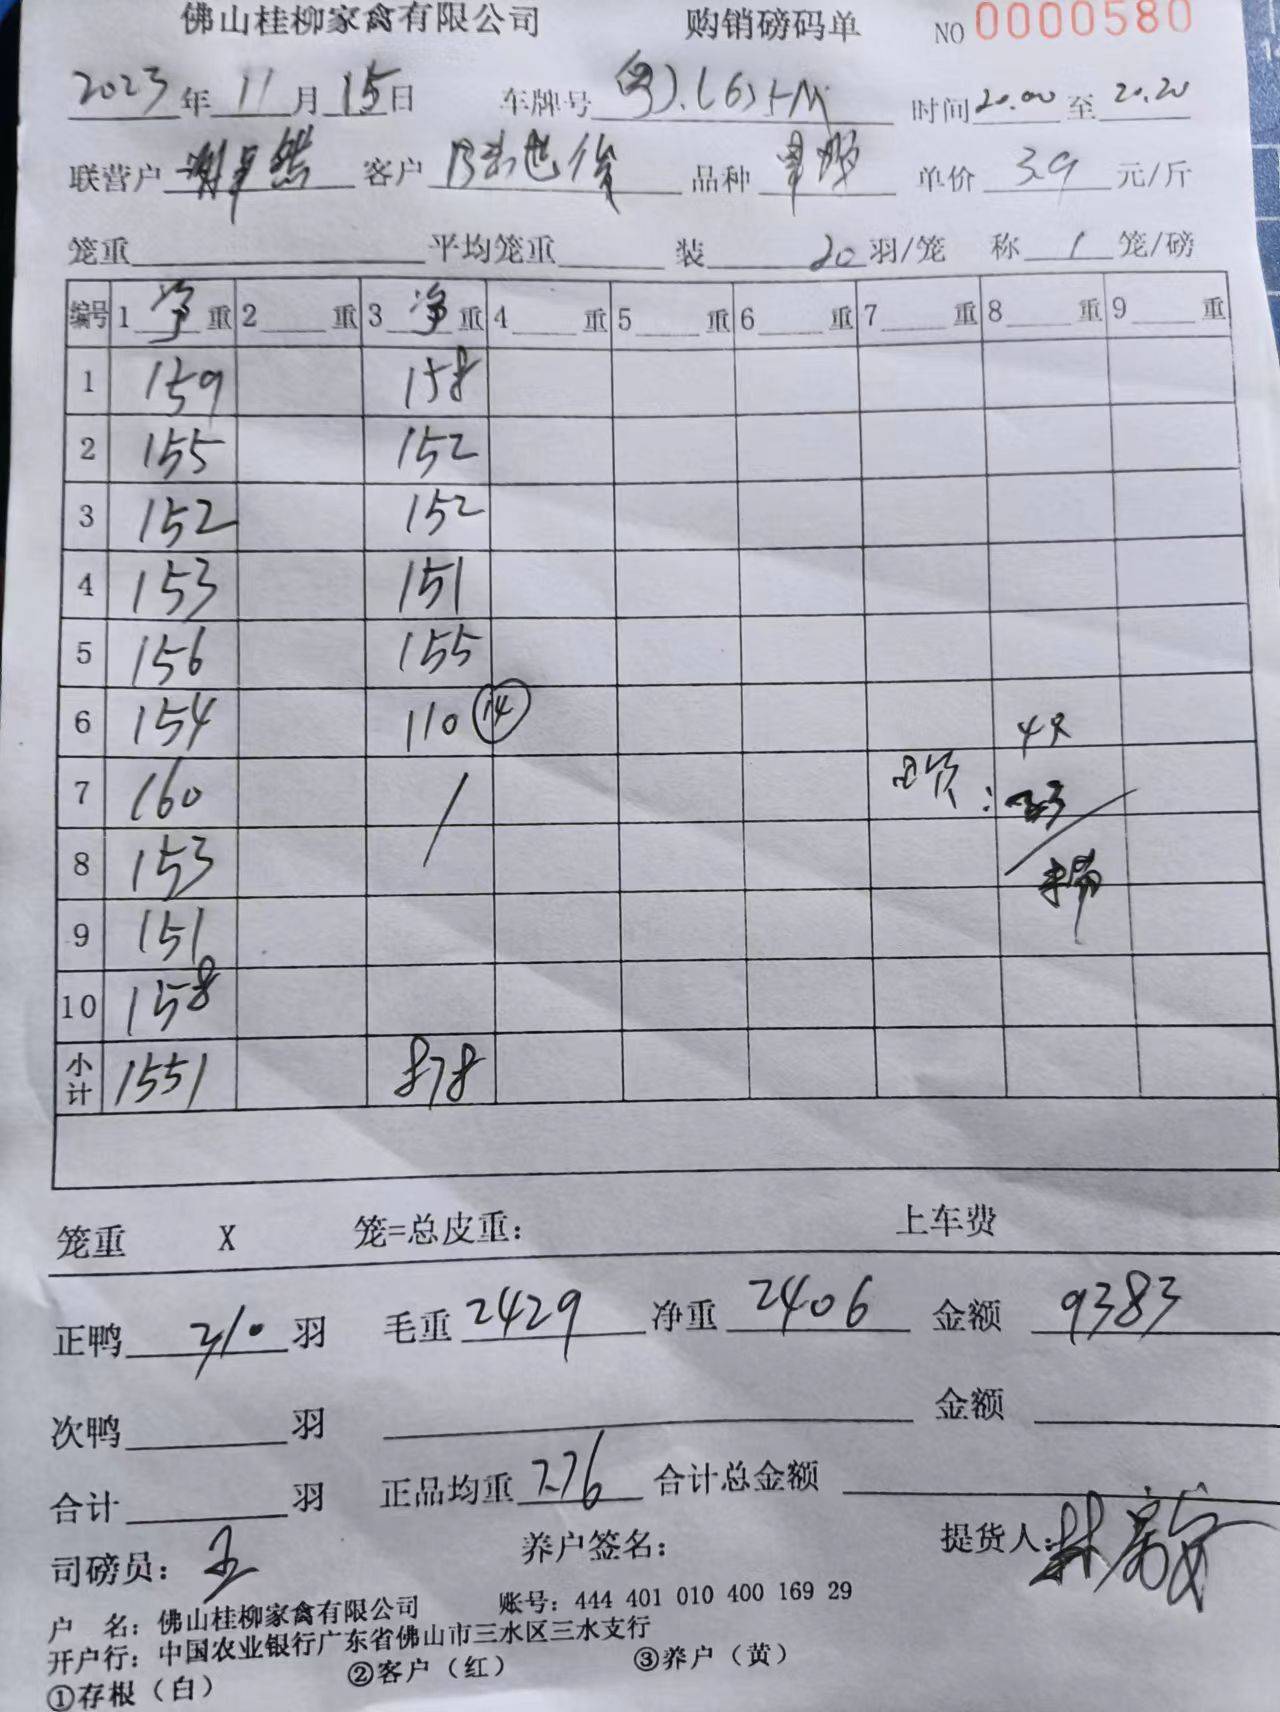 佛山桂柳家禽有限公司 购销磅码单 NO 0000580
2023年11月15日 车牌号 时间20.00至20.20
联营户 客户 品种 单价 3.9 元/斤
笼重 平均笼重 装 20 羽/笼 称 1 笼/磅
编号 1 净 重 2 重 3 净 重 4 重 5 重 6 重 7 重 8 重 9 重
1 159 158
2 155 152
3 152 152
4 153 151
5 156 155
6 154 110 14 4只
7 160 /
8 153
9 151
10 158
小计 1551 878
笼重 X 笼=总皮重: 上车费
正鸭 210 羽 毛重 2429 净重 2406 金额 9383
次鸭 羽 金额
合计 羽 正品均重 7.76 合计总金额
司磅员: 王 养户签名: 提货人:林
户 名: 佛山桂柳家禽有限公司 账号: 444 401 010 400 169 29
开户行: 中国农业银行广东省佛山市三水区三水支行
①存根(白) ②客户(红) ③养户(黄)